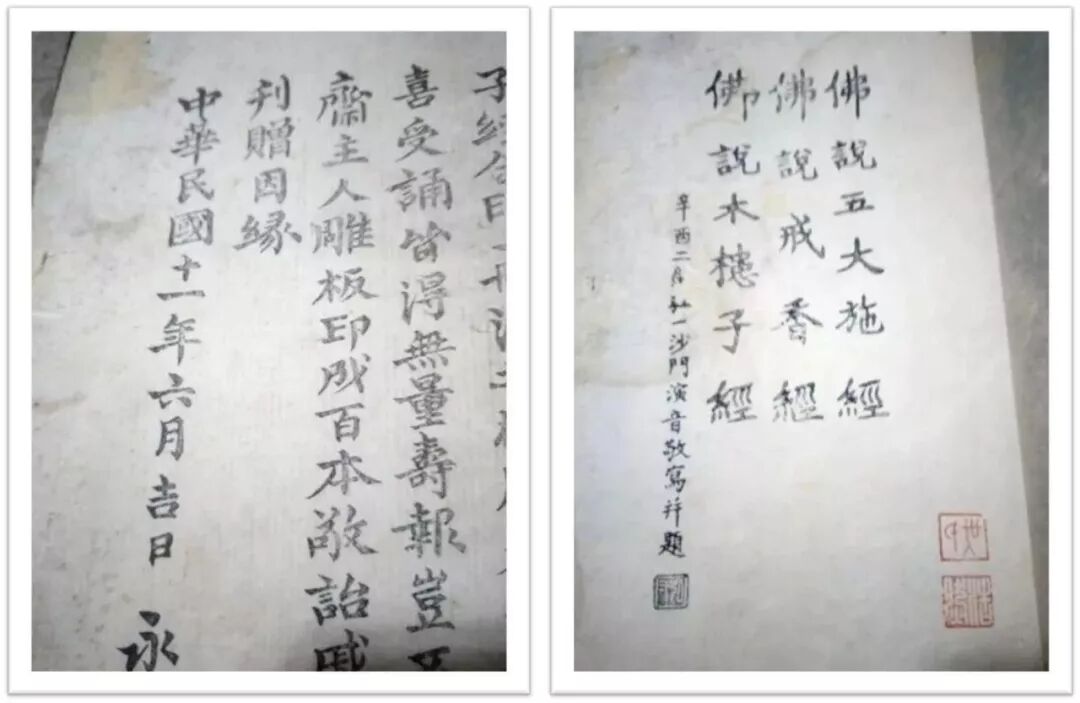 子經合印一
喜受誦皆得無量壽報豈
齋主人雕板印成百本敬詒戚
刊贈因緣
中華民國十一年六月吉日 永
佛說五大施經
佛說戒香經
佛說木槵子經
辛酉二月弘一沙門演音敬寫并題